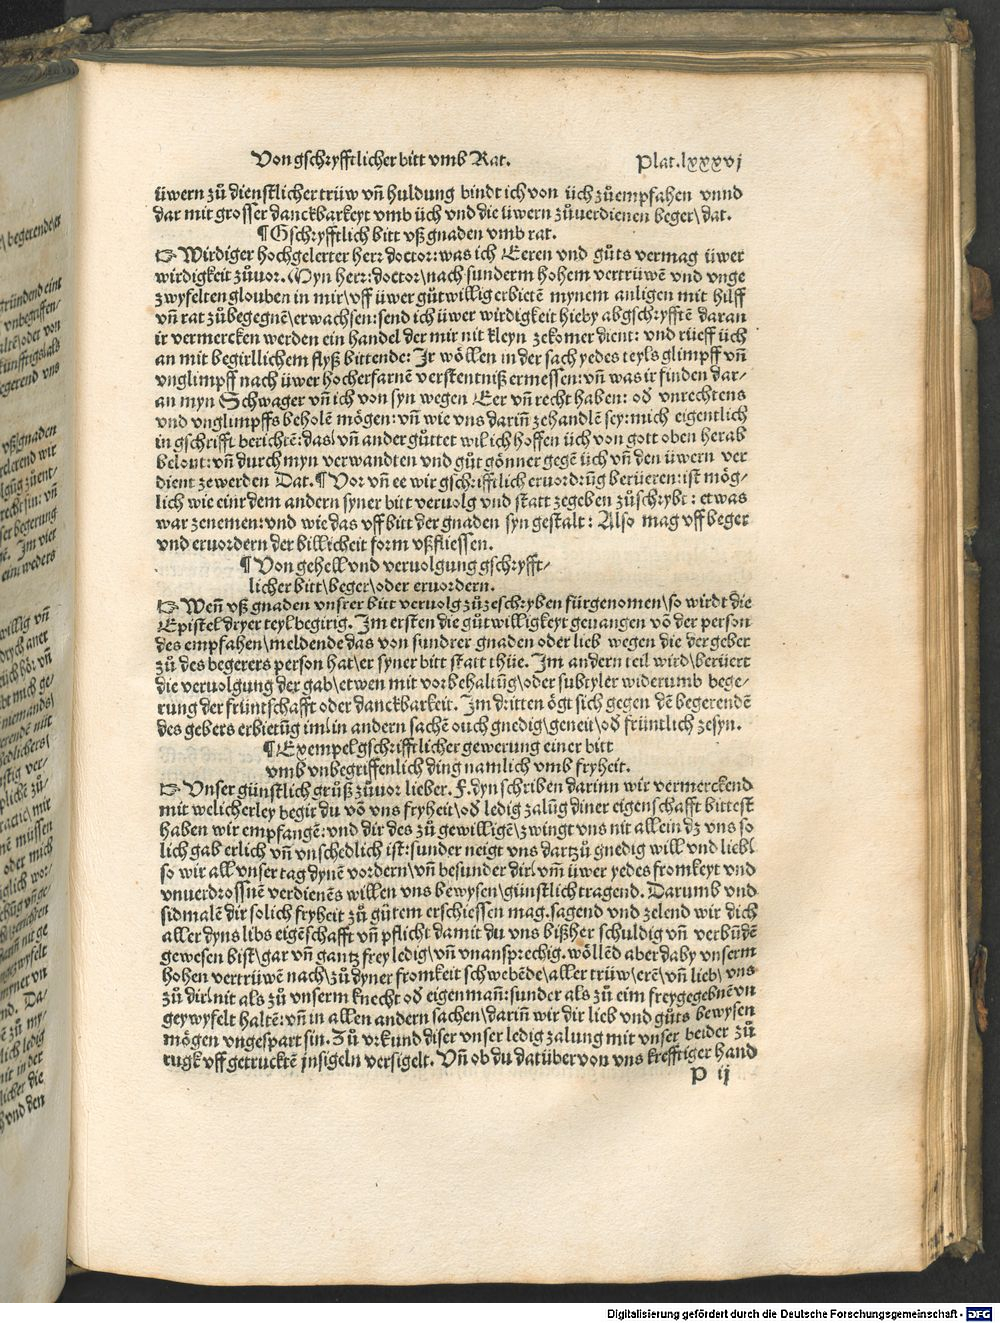 Von gschryfftlicher bitt vmb Rat.
Plat.lxxxvj
üwern zů dienstlicher trüw vñ huldung bindt ich von üch zůempfahen vnnd
dar mit grosser danckbarkeyt vmb üch vnd die üwern zůuerdienen beger\ dat.
¶ Gschryfftlich bitt vß gnaden vmb rat.
☞ Wirdiger hochgelerter herr doctor: was ich Eeren vnd gůts vermag üwer
wirdigkeit zůuor. Myn herr: doctor\ nach sunderm hohem vertrüwē vnd vnge
zwyfelten glouben in mir\ vff üwer gůtwillig erbietē mynem anligen mit hilff
vñ rat zůbegegnē\ erwachsen: send ich üwer wirdigkeit hieby abgschryfftē daran
ir vermercken werden ein handel der mir nit kleyn zekomer dient: vnd rüeff üch
an mit begirllichem flyß bittende: Ir wöllen in der sach yedes teyls glimpff vñ
vnglimpff nach üwer hocherfarnē verstentniß ermessen: vñ was ir finden dar-
an myn Schwager vñ ich von syn wegen Eer vñ recht haben: od vnrechtens
vnd vnglimpffs beholē mögen: vñ wie vns dariñ zehandlē sey: mich eigentlich
in gschrifft berichtē: das\ vñ ander güttet wil ich hoffen üch von gott oben herab
belont: vñ durch myn verwandten vnd gůt gönner gegē üch vñ den üwern ver
dient ze werden Dat. ¶ Vor vñ ee wir gschrifftlich eruordrūg berüeren: ist mög-
lich wie einr dem andern syner bitt veruolg vnd statt zegeben zůschrybt: etwas
war zenemen: vnd wie das vff bitt der gnaden syn gestalt: Also mag vff beger
vnd eruordern der billicheit form vßfliessen.
¶ Von gehell vnd veruolgung gschryfft-
licher bitt\ beger\ oder eruordern.
☞ Weñ vß gnaden vnsrer bitt veruolg zůzeschryben fürgenomen\ so wirdt die
Epistel dryer teyl begirig. Im ersten die gůtwilligkeyt geuangen vō der person
des empfahen\ meldende das von sundrer gnaden oder lieb wegen die der geber
zů des begerers person hat\ er syner bitt statt thüe. Im andern teil wird\ berüert
die veruolgung der gab\ etwen mit vorbehaltūg\ oder subtyler widerumb bege-
rung der früntschafft oder danckbarkeit. Im dritten ögt sich gegen dē begerendē
des gebers erbietūg im\ in andern sachē ouch gnedig\ geneit\ od früntlich zesyn.
¶ Exempel gschrifftlicher gewerung einer bitt
vmb vnbegriffenlich ding namlich vmb fryheit.
☞ Vnser günstlich grůß zůuor lieber. F. dyn schriben darinn wir vermerckend
mit welicherley begir du vō vns fryheit\ od ledig zalūg diner eigenschafft bittest
haben wir empfangē: vnd dir des zů gewilligē\ zwingt vns nit allein dz vns so
lich gab erlich vñ vnschedlich ist: sunder neigt vns dartzů gnedig will vnd lieb\
so wir all vnser tag dynē vordern\ vñ besunder dir\ vm̄ üwer yedes fromkeyt vnd
vnuerdrossnē verdienēs willen vns bewysen\ günstlich tragend. Darumb vnd
sidmalē dir solich fryheit zů gůtem erschiessen mag. sagend vnd zelend wir dich
aller dyns libs eigēschafft vñ pflicht damit du vns bißher schuldig vñ verbūdē
gewesen bist\ gar vñ gantz frey ledig\ vñ vnansprechig. wöllēd aber daby vnserm
hohen vertrüwē nach\ zů dyner fromkeit schwebēde\ aller trüw\ erē\ vñ lieb\ vns
zů dir\ nit als zů vnserm knecht od eigen mañ: sunder als zů eim freygegebnē vn
geywyfelt haltē: vñ in allen andern sachen\ dariñ wir dir lieb vnd gůts bewysen
mögen vngespart sin. Zů vrkund diser vnser ledig zalung mit vnser beider zů
rugk vff getrucktē jnsigeln versigelt. Vñ ob du darüber von vns krefftiger hand
P ij
Digitalisierung gefördert durch die Deutsche Forschungsgemeinschaft - DFG